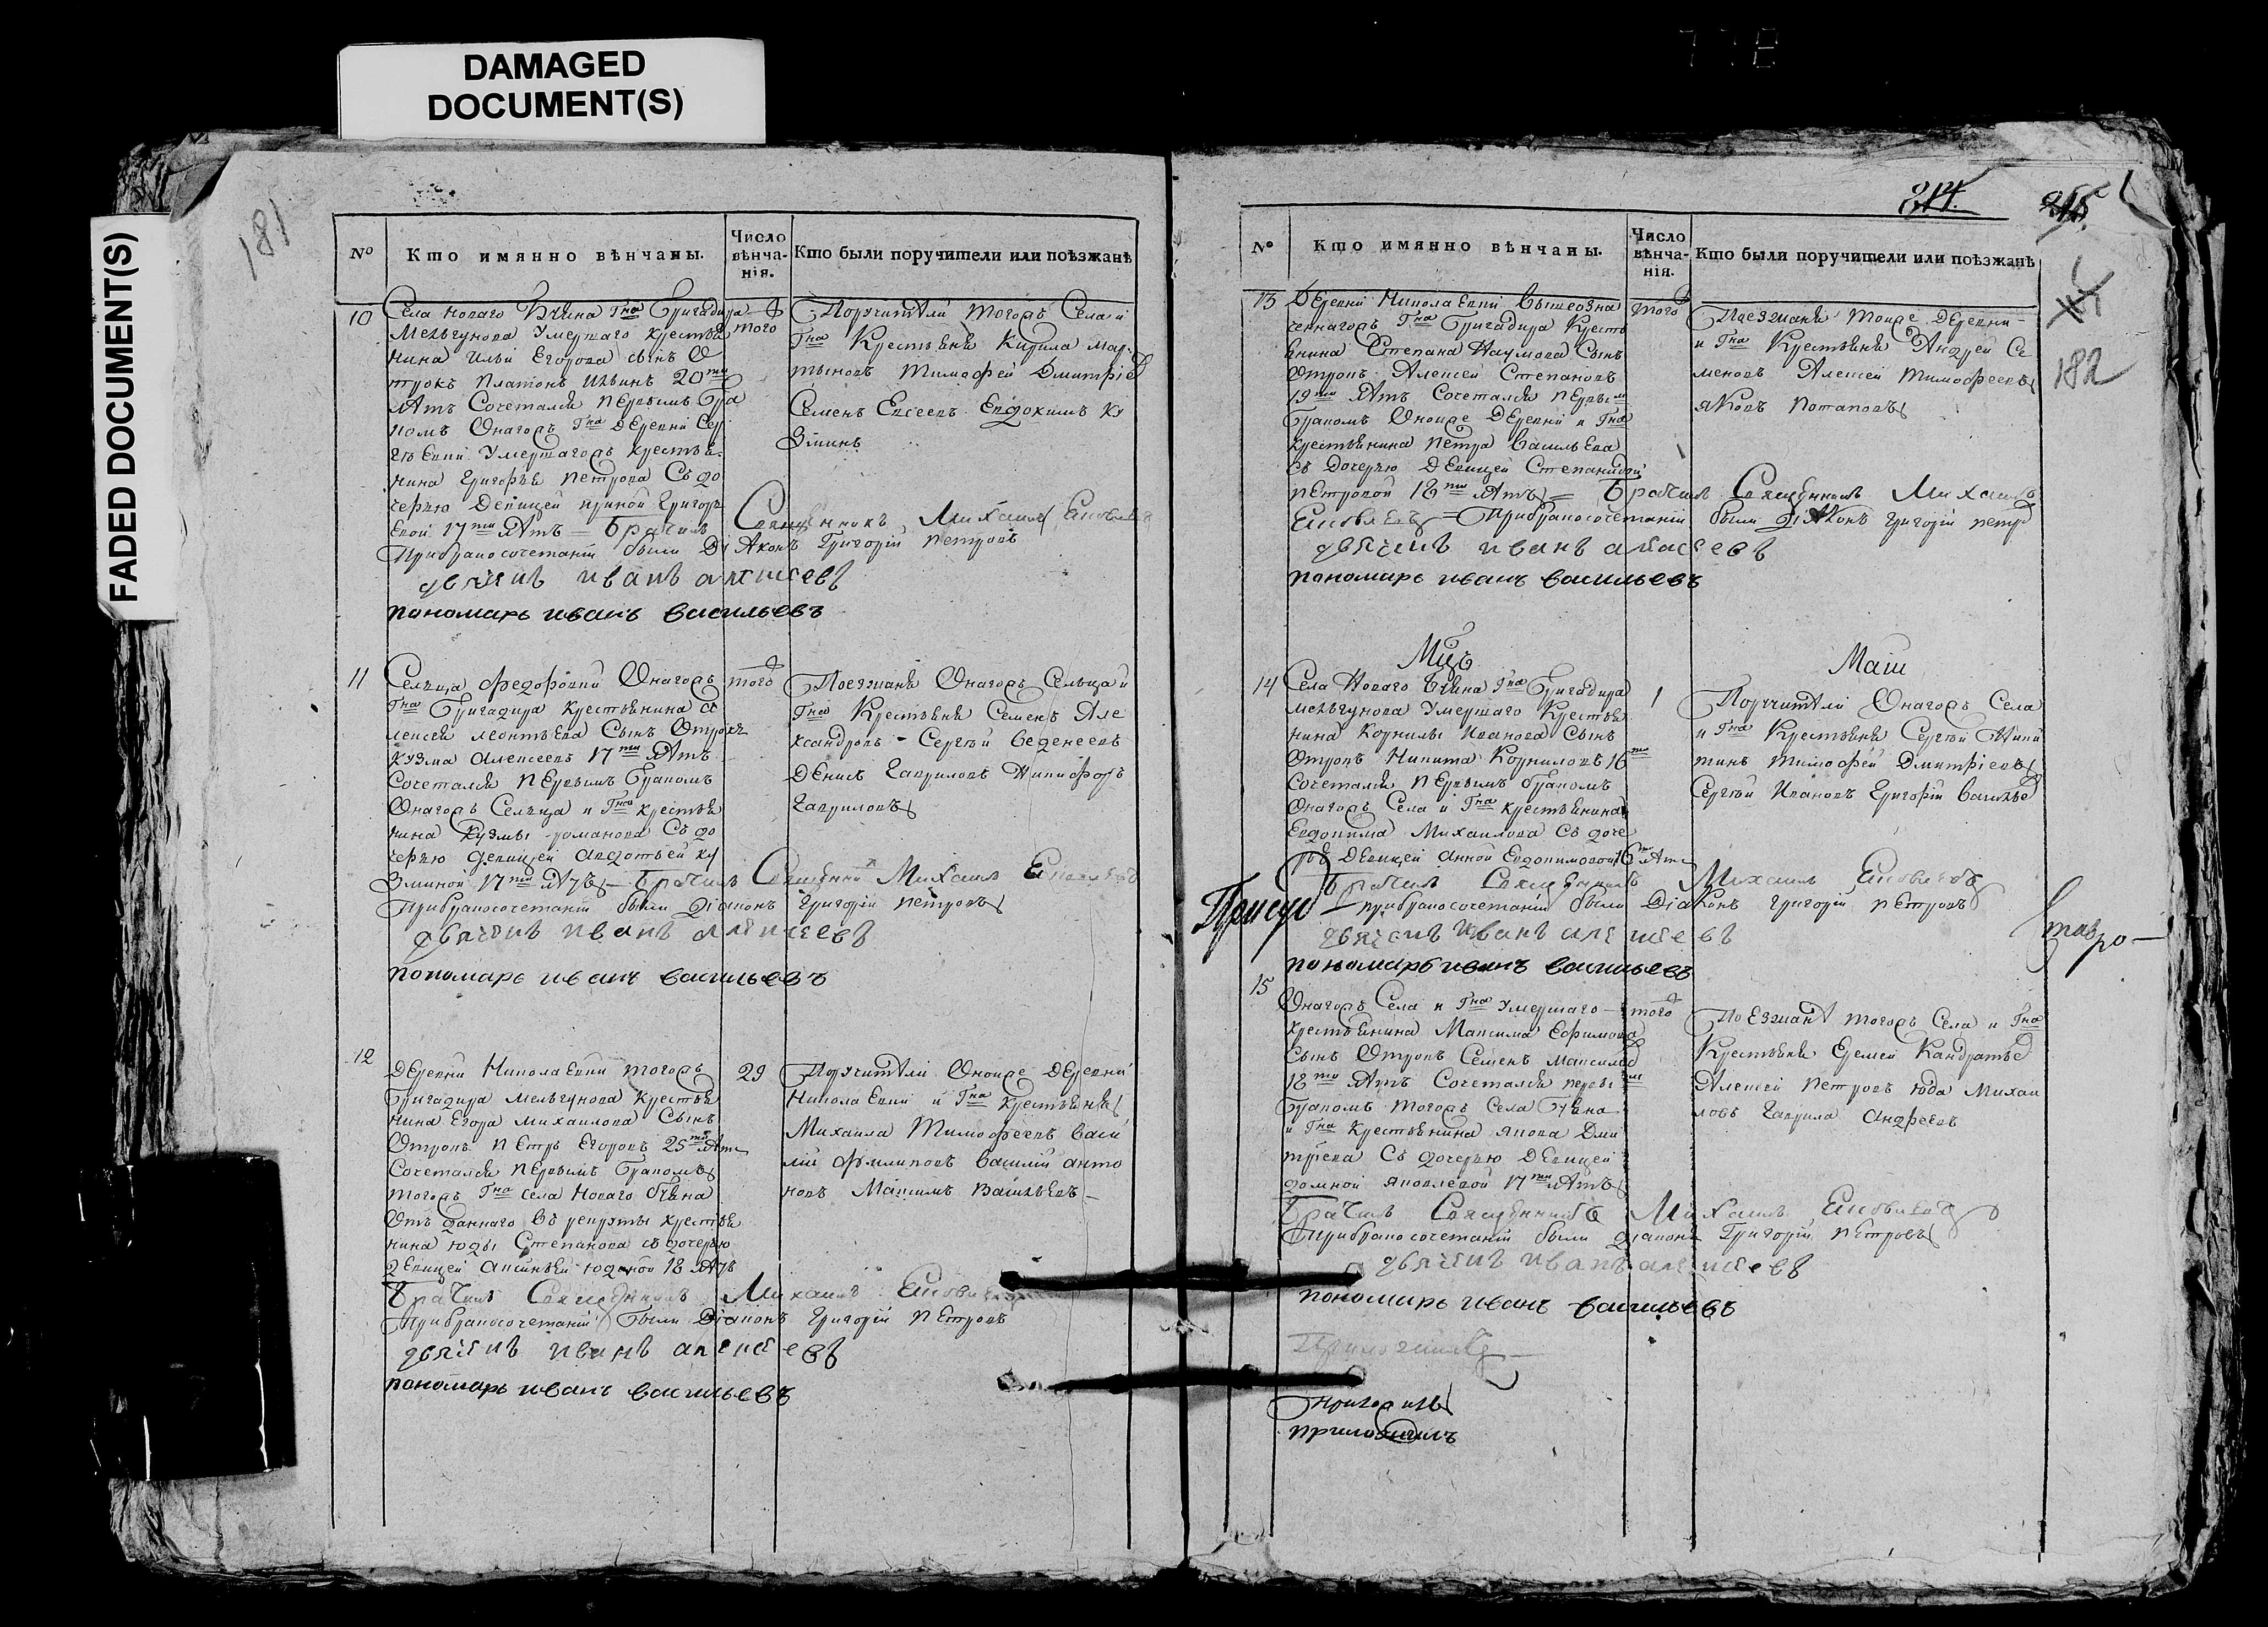 DAMAGED
DOCUMENT(S)
FADED DOCUMENT(S)
181
№
Кто имянно вѣнчаны.
Число
вѣнча-
нія.
Кто были поручители или поѣзжанѣ
10
Села Новаго Гна Бригадира
Мельгунова Умершаго крестья
нина Ильи Егорова сынъ О
трокъ Платонъ Ильинъ 20ти
лѣтъ Сочетался первымъ бра
комъ Онагожъ Гна деревни Сер
гѣевки Умершагожъ крестья
нина Григорья Петрова съ до
черью девицей Григорь
евой 17ти лѣтъ Брачилъ Священникъ Михаилъ
При бракосочетаніи были Діаконъ Григорій Петровъ
дьячекъ иванъ алексеевъ
пономарь иванъ васильевъ
того
Поручители тогожъ Села и
Гна Крестьяне Кирила Мар
тыновъ Тимофей Дмитріев
Семенъ Евсеевъ Евдокимъ Ку
зминъ
11
Сельца Федоровки Онагожъ
Гна Бригадира крестьянина а
лексея леонтьева Сынъ Отрокъ
кузма алексеевъ 17ти лѣтъ
Сочетался первымъ бракомъ
Онагожъ Сельца и Гна крестья
нина кузмы романова Съ до
черью девицей авдотьей ку
зминой 17ти лѣтъ Брачилъ Священникъ Михаилъ
При бракосочетаніи были діаконъ Григорій Петровъ
дьячекъ иванъ алексеевъ
пономарь иванъ васильевъ
того
Поезжане Онагожъ Сельца и
Гна Крестьяне Семенъ Але
ксандровъ Сергѣй Веденеевъ
Денисъ Гавриловъ Никифоръ
Гавриловъ
12
Деревни Николаевки тогожъ
Бригадира Мельгунова Крестья
нина Егора Михаилова Сынъ
Отрокъ Петръ Егоровъ 25ти лѣт
Сочетался первымъ бракомъ
тогожъ Гна села Новаго
Отъданнаго въ рекруты крестья
нина юды Степанова съ дочерью
девицей аксиньей юдиной 18 лѣтъ
Брачилъ Священникъ Михаилъ
При бракосочетаніи были Діаконъ Григорій Петровъ
дьячекъ иванъ алексеевъ
пономарь иванъ васильевъ
29
Поручители Оноиже деревни
Николаевки и Гна крестьяне
Михаила Тимофеевъ Васи
лій Филиповъ Василій анто
новъ Максимъ Васильевъ
814.
815
182
№
Кто имянно вѣнчаны.
Число
вѣнча-
нія.
Кто были поручители или поѣзжанѣ
13
Деревни Николаевки Вышеозна
ченнагожъ Гна Бригадира Кресть
янина Степана Наумова Сынъ
Отрокъ Алексей Степановъ
19ти лѣтъ Сочетался первым
бракомъ Оноиже деревни и Гна
крестьянина Петра Васильева
съ дочерью девицей Степанидой
петровой 18ти лѣтъ Брачилъ Священникъ Михаилъ
При бракосочетаніи были діаконъ Григорій Петров
дьячекъ иванъ алексеевъ
пономарь иванъ васильевъ
того
Поезжане тоиже деревни
и Гна Крестьяне Андрей Се
меновъ Алексей Тимофеевъ
яковъ Потаповъ
Мцъ
Маіи
14
Села Новаго Гна Бригадира
Мельгунова Умершаго Крестья
нина Корнилы Иванова Сынъ
Отрокъ Никита Корниловъ 16ти
Сочетался первымъ бракомъ
Онагожъ Села и Гна крестьянина
Евдокима Михаилова Съ доче
рью девицей анной Евдокимовой 16ти лѣт
Брачилъ Священникъ Михаилъ
При бракосочетаніи были Діаконъ Григорій Петровъ
дьячекъ иванъ алексеевъ
пономарь иванъ васильевъ
1
Поручители Онагожъ Села
и Гна Крестьяне Сергѣй Ники
тинъ Тимофей Дмитріевъ
Сергѣй Ивановъ Григорій Василье
15
Онагожъ Села и Гна Умершаго
крестьянина Максима Ефимова
Сынъ Отрокъ Семенъ Максимов
18ти лѣтъ Сочетался первым
бракомъ тогожъ Села
и Гна крестьянина якова Дми
тріева Съ дочерью девицей
домной яковлевой 17ти лѣтъ
Брачилъ Священникъ Михаилъ
При бракосочетаніи были діаконъ Григорій Петровъ
дьячекъ иванъ алексеевъ
пономарь иванъ васильевъ
того
Поезжане тогожъ Села и Гна
Крестьяне Еремей Кандратье
Алексей Петровъ юда Михаи
ловъ Гаврила Андреевъ